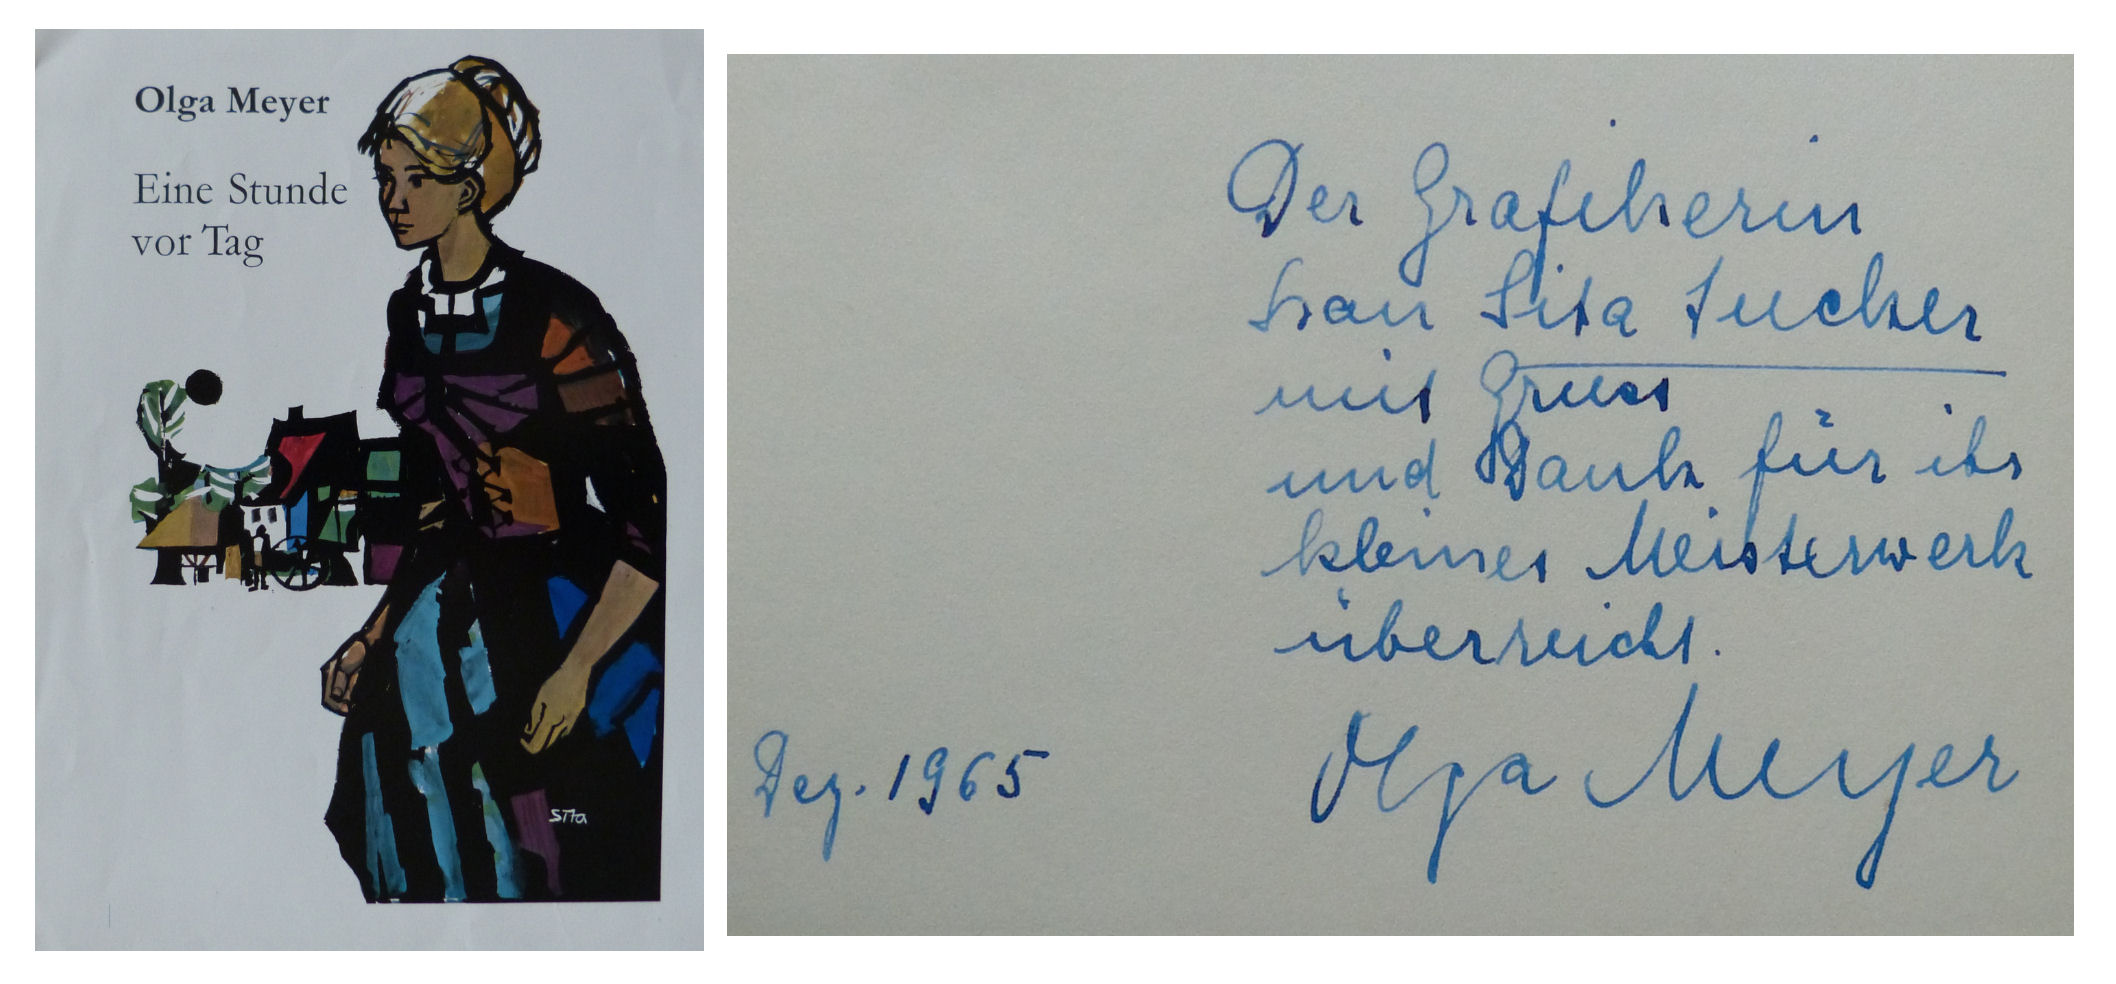 Olga Meyer
Eine Stunde
vor Tag
SITa
Der Grafikerin
Frau Sita Jucker
mit Gruss
und Dank für ihr
kleines Meisterwerk
überreicht.
Dez. 1965
Olga Meyer